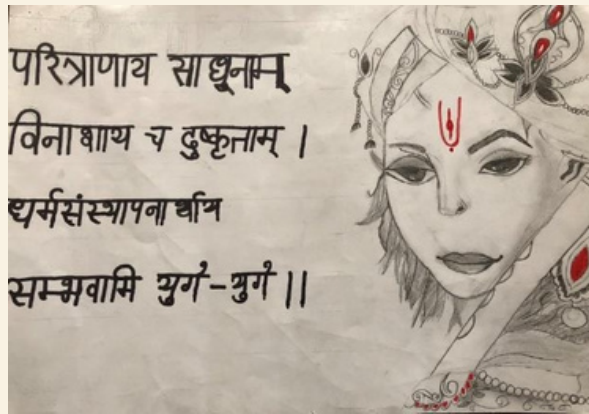 परित्राणाय साधूनाम्
विनाशाय च दुष्कृताम् ।
धर्मसंस्थापनार्थाय
सम्भवामि युगे-युगे ।।